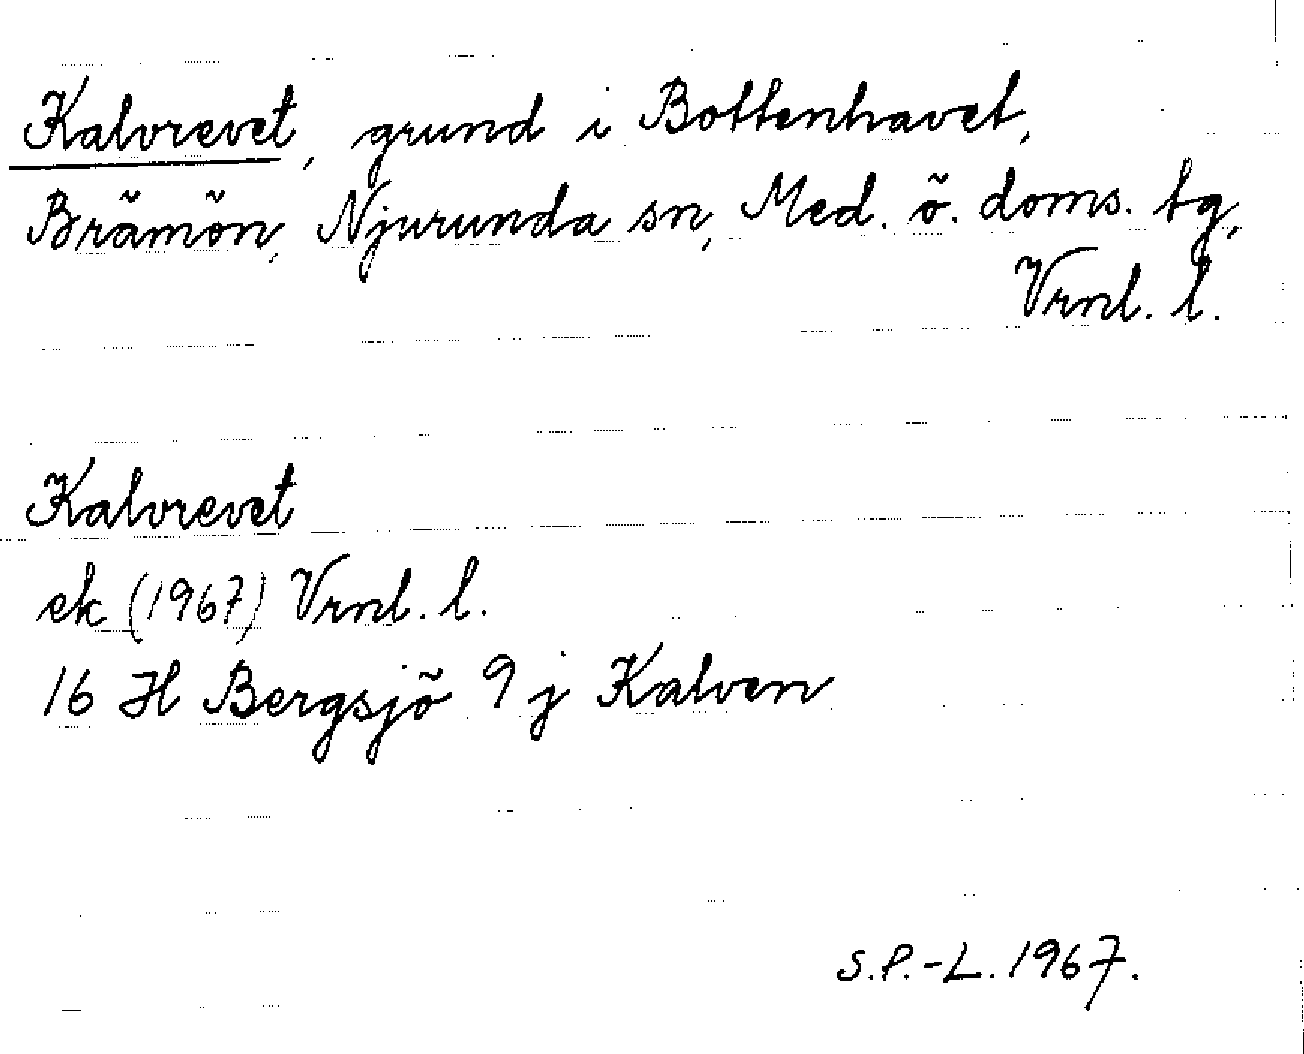 Kalvrevet, grund i Bottenhavet,
Brämön, Njurunda sn, Med. ö. doms. tg,
Vrnl. l.
Kalvrevet
ek (1967) Vrnl. l.
16 H Bergsjö 9 j Kalven
S.P.-L. 1967.